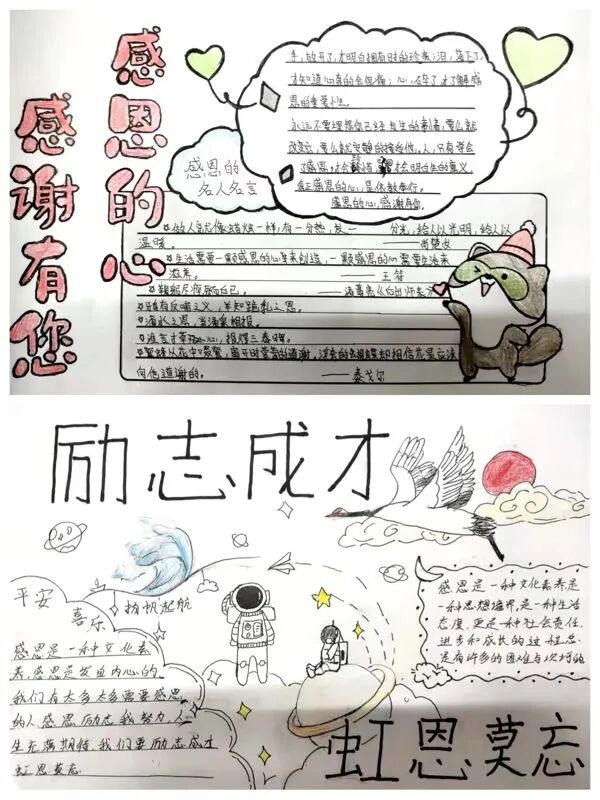 感恩的心
感谢有您
手,放开了,才明白拥有时的珍贵;泪,落下了,
才知道心真的会很痛;心,碎了,才了解感
恩的重要性。
永远不要埋怨你已经发生的事情,要么就
改变它,要么就安静的接受他,人,只有学会
了感恩,才会
才会明白生的意义,
真正感恩的心,是体教奉行。
感恩的心,感谢有你。
感恩的
名人名言
做人就像蜡烛一样,有一分热,发一分光,给人以光明,给人以
温暖。 ——肖楚女
生活需要一颗感恩的心来创造,一颗感恩的心需要生活来
滋养。 ——王符
鞠躬尽瘁,死而后已。 ——诸葛亮《后出师表》
乌鸦有反哺之义,羊知跪乳之恩。
滴水之恩,当涌泉相报。
谁言寸草心,报得三春晖。
蜜蜂从花中啜蜜,离开时营营的道谢,浮夸的蝴蝶却相信花是应该
向他道谢的。 ——泰戈尔
励志成才
平安
喜乐
扬帆起航
感恩是一种文化素
养,感恩是发自内心的。
我们有太多太多需要感恩
的人感恩励志我努力,人
生充满期待,我们要励志成才
虹恩莫忘
感恩是一种文化素养是
一种思想境界,是一种生活
态度,更是一种社会责任.
进步和成长的过程总
是有许多的困难与坎坷的
虹恩莫忘